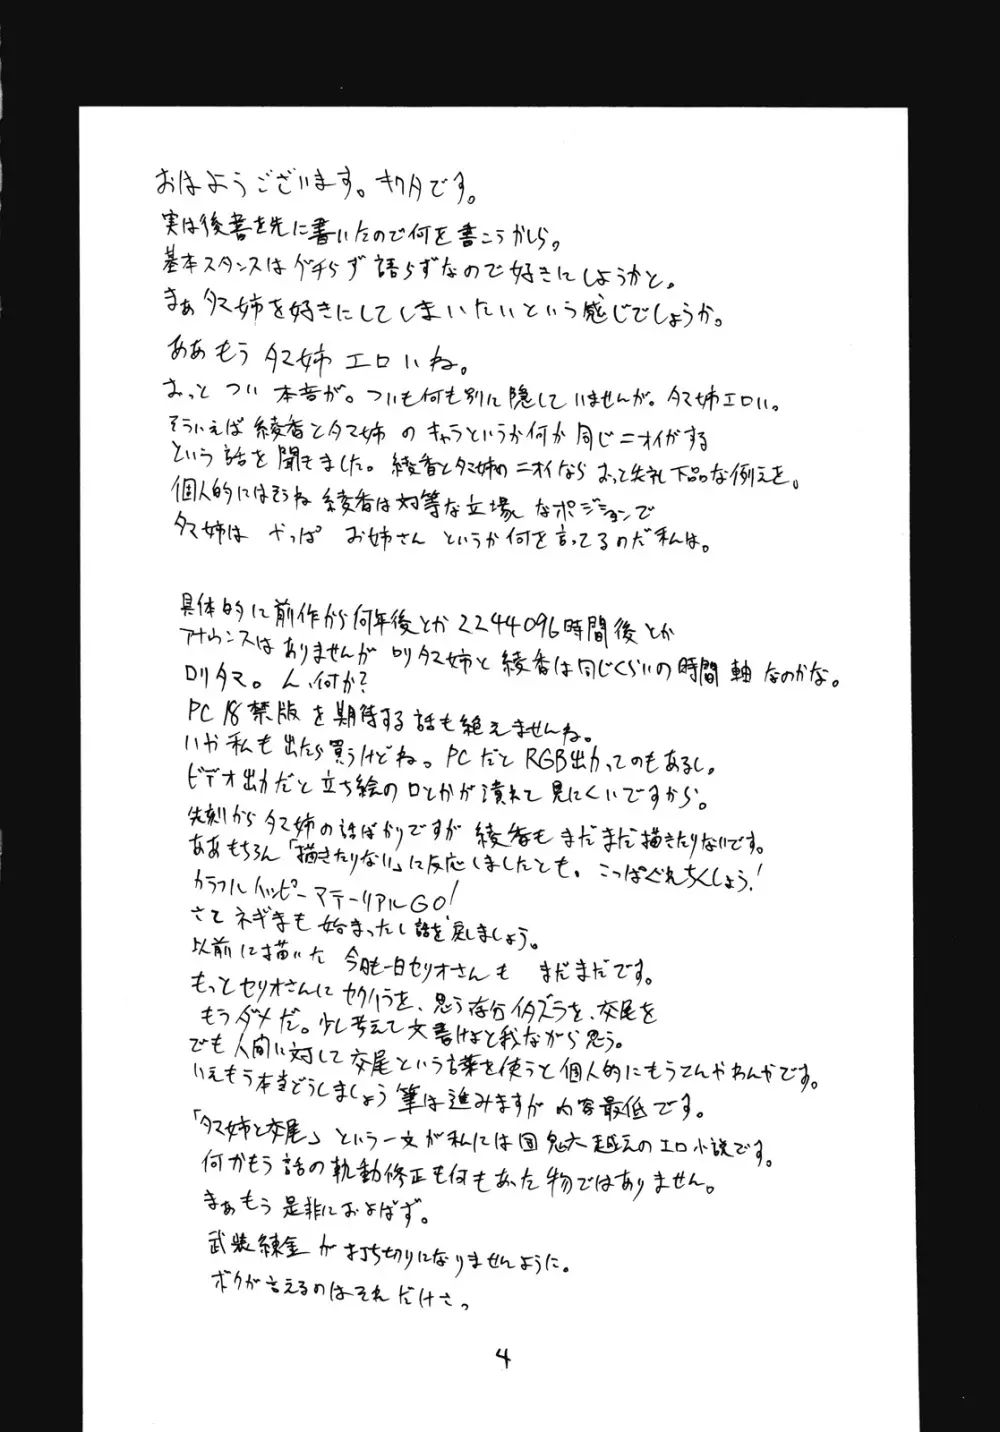 おはようございます。キクタです。
実は後書を先に書いたので何を書こうかしら。
基本スタンスはグチらず語らずなので好きにしようかと。
まぁタマ姉を好きにしてしまいたいという感じでしょうか。
ああもうタマ姉エロいね。
おっと つい 本音が。ついも何も別に隠していませんが。タマ姉エロい。
そういえば綾香とタマ姉のキャラというか何か同じニオイがする
という話を聞きました。綾香とタマ姉のニオイなら おっと失礼 下品な例えを。
個人的にはそうね 綾香は対等な立場 なポジションで
タマ姉は やっぱ お姉さん というか何を言ってるのだ私は。
具体的に前作から何年後とか2244096時間後とか
アナウンスはありませんがロリタマ姉と綾香は同じくらいの時間軸なのかな。
ロリタマ。ん、何か?
PC18禁版を期待する話も絶えませんね。
いや私も出たら買うけどね。PCだとRGB出力ってのもあるし。
ビデオ出力だと立ち絵の口とかが潰れて見にくいですから。
先刻からタマ姉の話ばかりですが綾香もまだまだ描きたりないです。
ああもちろん「描きたりない」に反応しましたとも。こっぱぐれちくしょう!
カラフルハッピーマテーリアルGO!
さてネギまも始まったし話を戻しましょう。
以前に描いた今日も一日セリオさんも まだまだです。
もっとセリオさんにセクハラを、思う存分イタズラを、交尾を
もうダメだ。少し考えて文書けよと我ながら思う。
でも人間に対して交尾という言葉を使うと個人的にもうてんやわんやです。
いえもう本当どうしましょう筆は進みますが内容最低です。
「タマ姉と交尾」という一文が私には団鬼六越えのエロ小説です。
何かもう話の軌動修正も何もあった物ではありません。
まぁもう是非におよばず。
武装練金が打ち切りになりませんように。
ボクが言えるのはそれだけさっ
4